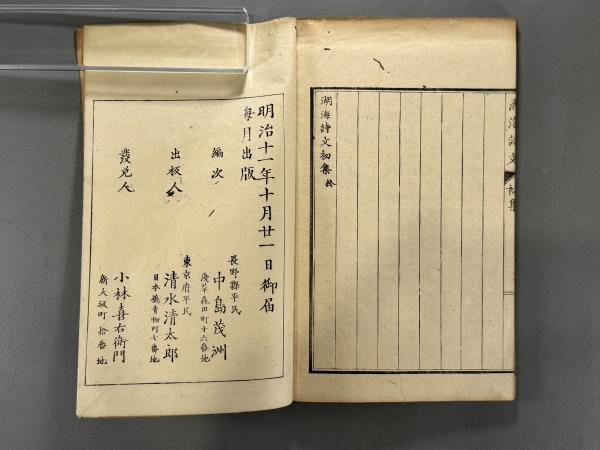 湖海詩文 初集
湖海詩文初集終
明治十一年十月廿一日御届
每月出版
編次
長野縣平民
中島茂洲
淺草森田町十六番地
出板人
東京府平民
清水清太郎
日本橋青物町七番地
發兌人
小林喜右衛門
新大坂町拾番地